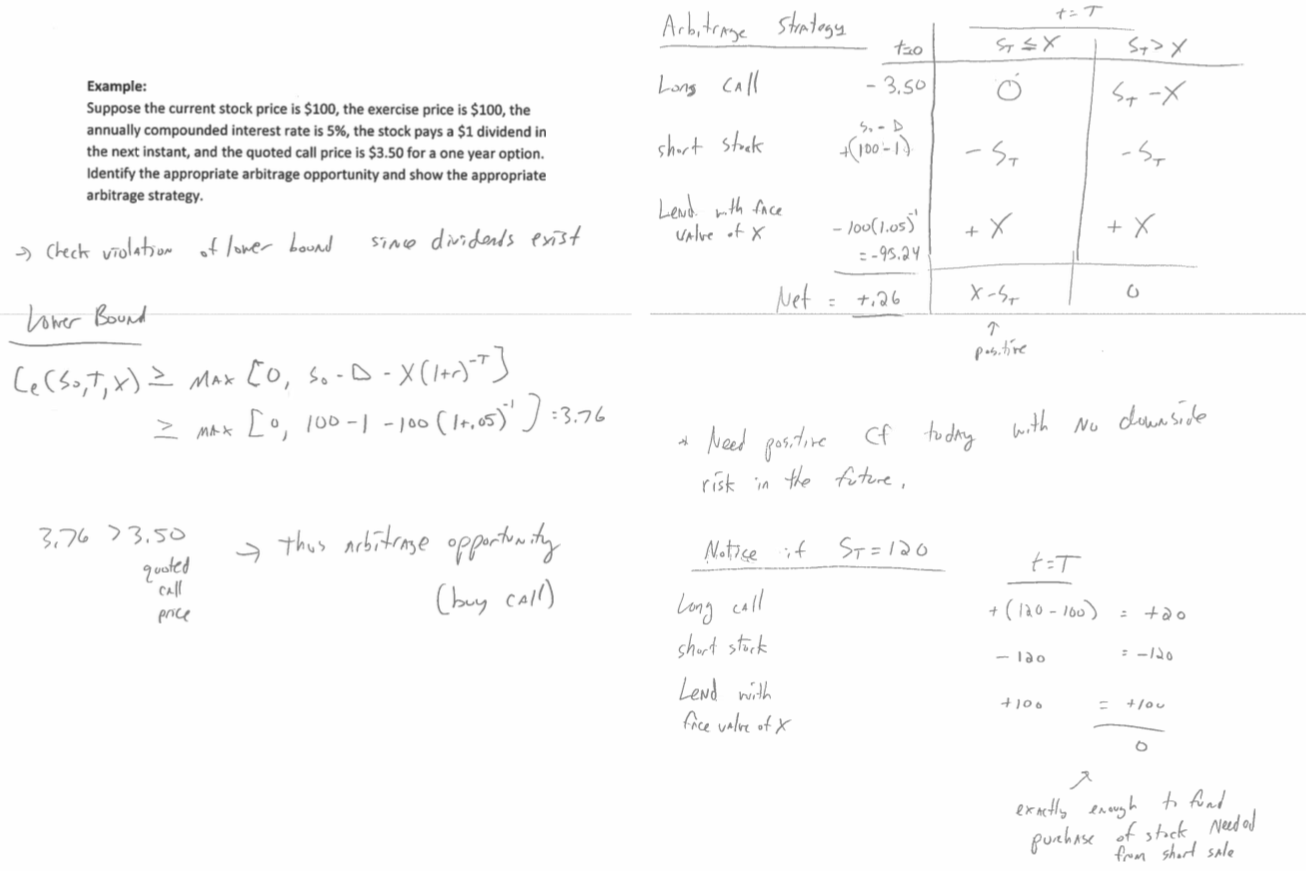 Example:
Suppose the current stock price is $100, the exercise price is $100, the
annually compounded interest rate is 5%, the stock pays a $1 dividend in
the next instant, and the quoted call price is $3.50 for a one year option.
Identify the appropriate arbitrage opportunity and show the appropriate
arbitrage strategy.
→ Check violation of lower bound since dividends exist
Lower Bound
Ce(S₀,T,X) ≥ MAX [0, S₀ - D - X(1+r)^-T]
≥ MAX [0, 100 - 1 - 100 (1+.05)^-1] = 3.76
3.76 > 3.50 → thus arbitrage opportunity
quoted
call
price
(buy call)
Arbitrage Strategy
t=T
t=0 S_T ≤ X S_T > X
Long call - 3.50 0 S_T - X
S₀ - D
short stock +(100-1) - S_T - S_T
Lend with face
value of X - 100(1.05)^-1 + X + X
= -95.24
Net = +.26 X - S_T 0
↑
positive
* Need positive CF today with no downside
risk in the future.
Notice if S_T = 120 t=T
Long call + (120 - 100) = +20
short stock - 120 = -120
Lend with
face value of X +100 = +100
0
exactly enough to fund
purchase of stock needed
from short sale